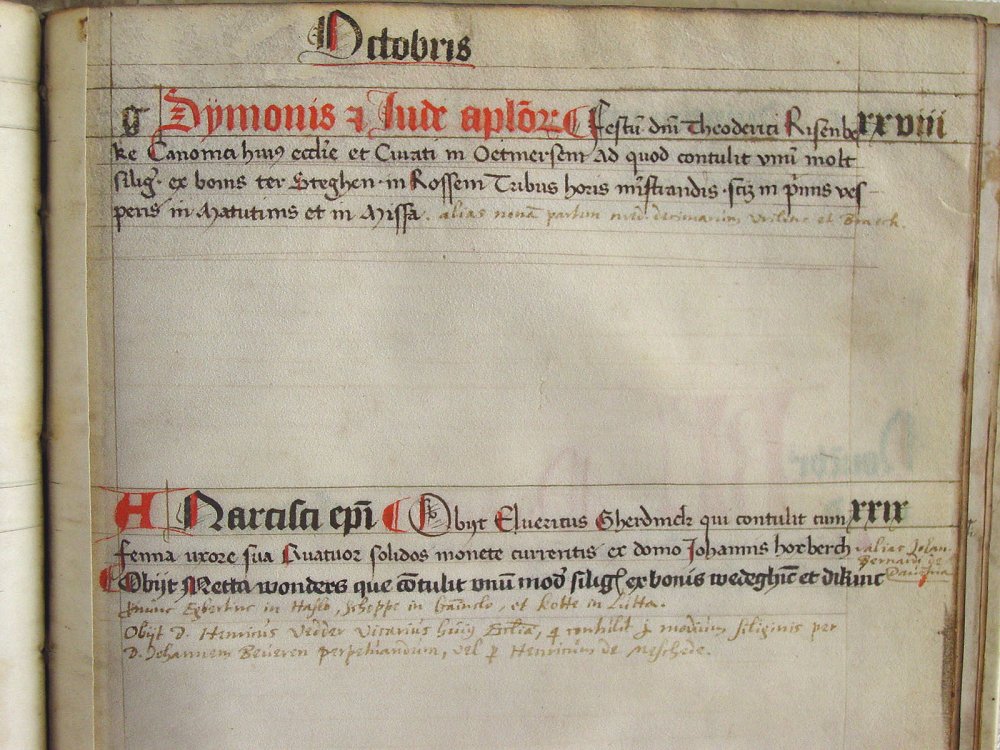 Octobris
g Symonis ⁊ Iude aplōr Festū dnī Theoderici Risenbe xxviii
ke Canonici huiꝰ ecclie et Curati in Oetmersem Ad quod contulit vnū molt
silig̃. ex bonis ter Steghen in Rossem Tribus horis mīstrandis .scꝫ in p̄mis ves
peris in Matutinis et in Missa. alias nonā partem decimarum et
A Narcisci ep̄i Obijt Elvericus Gherdinck qui contulit cum xxix
fenna uxore sua Quatuor solidos monete currentis ex domo Johannis horberch alias Johan
Bernardi de
Obijt Metta wonders que cōtulit vnū mod̓ silig̃ ex bonis wedeghinc et dikinc
nunc Egbertinc in Haslo, Scheppe in et kotte in Lutta.
Obijt D. Henricus Vedder Vicarius huiꝰ Ecclīa, q contulit j modium siliginis per
D. Johannem Beueren perpetuandum, vel p Henricum de Meschede.